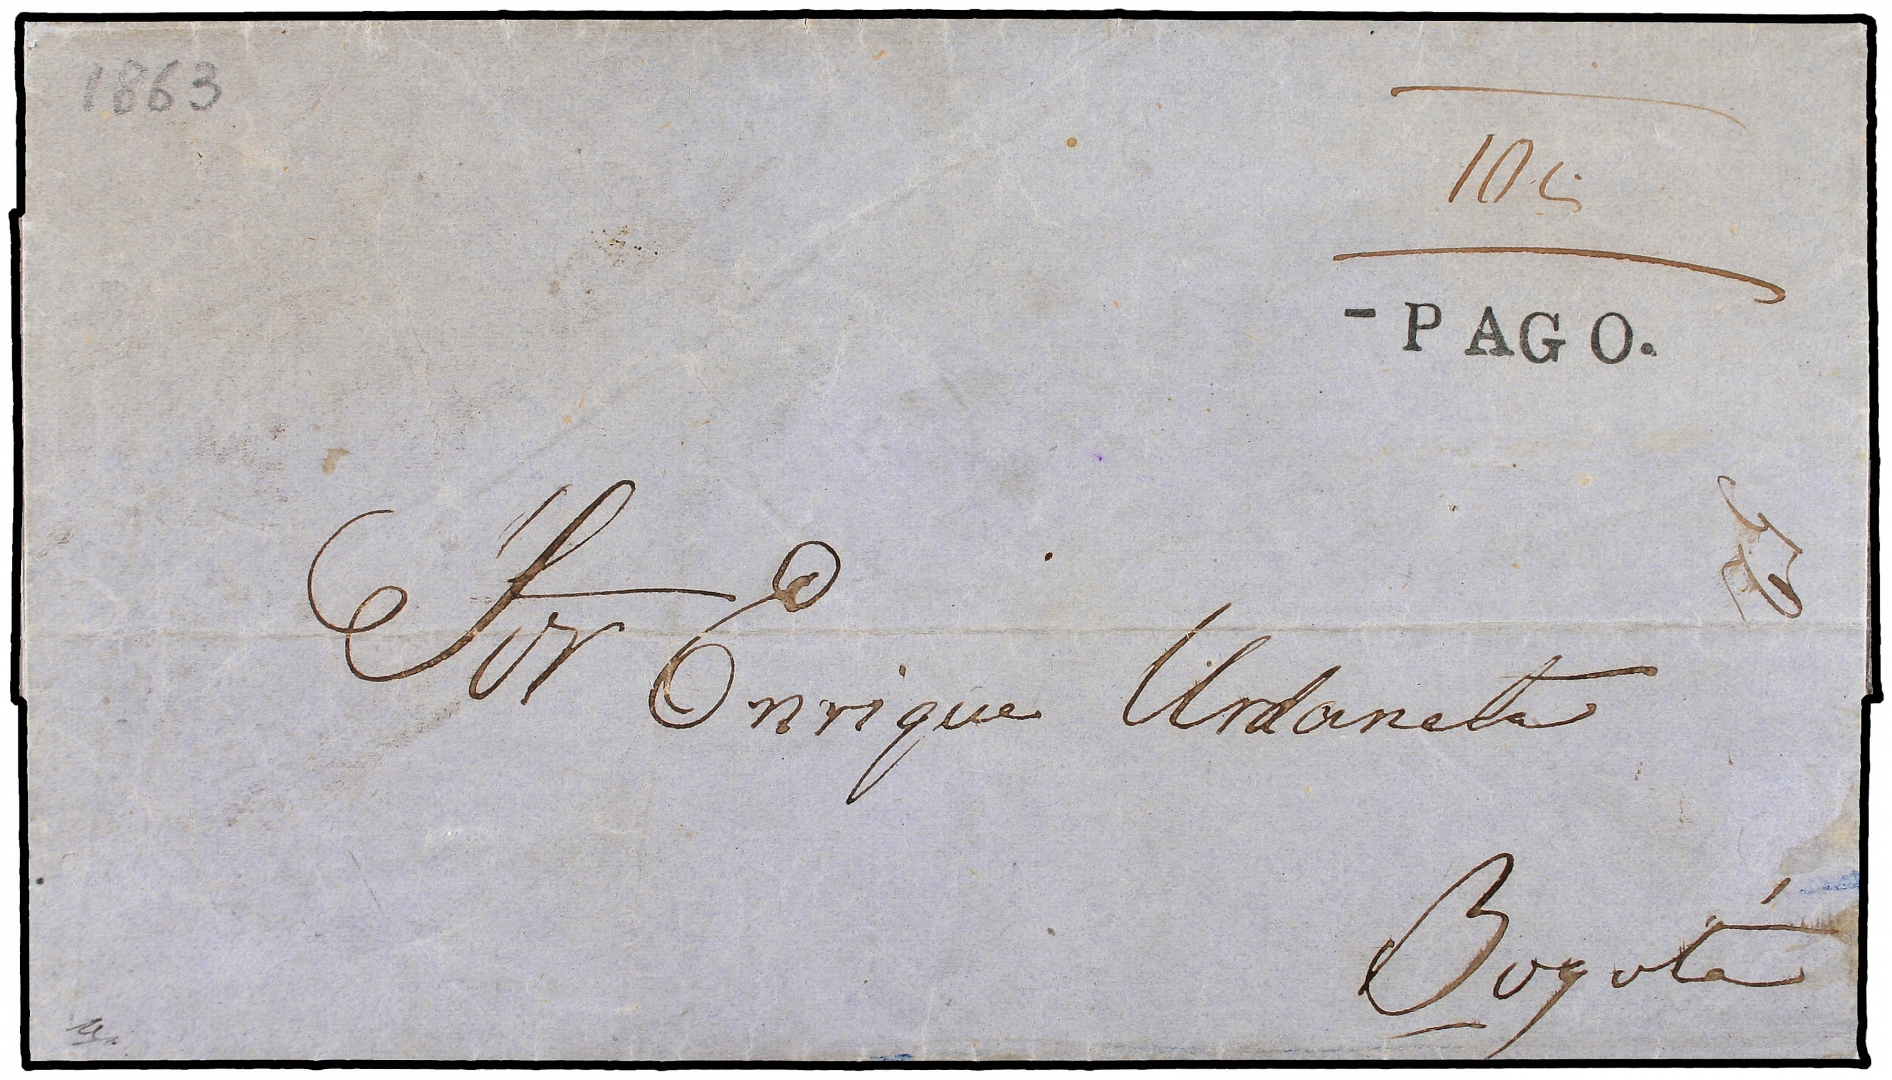 1863
10 c.
- PAGO.
Sor Enrique Urdaneta
Bogotá